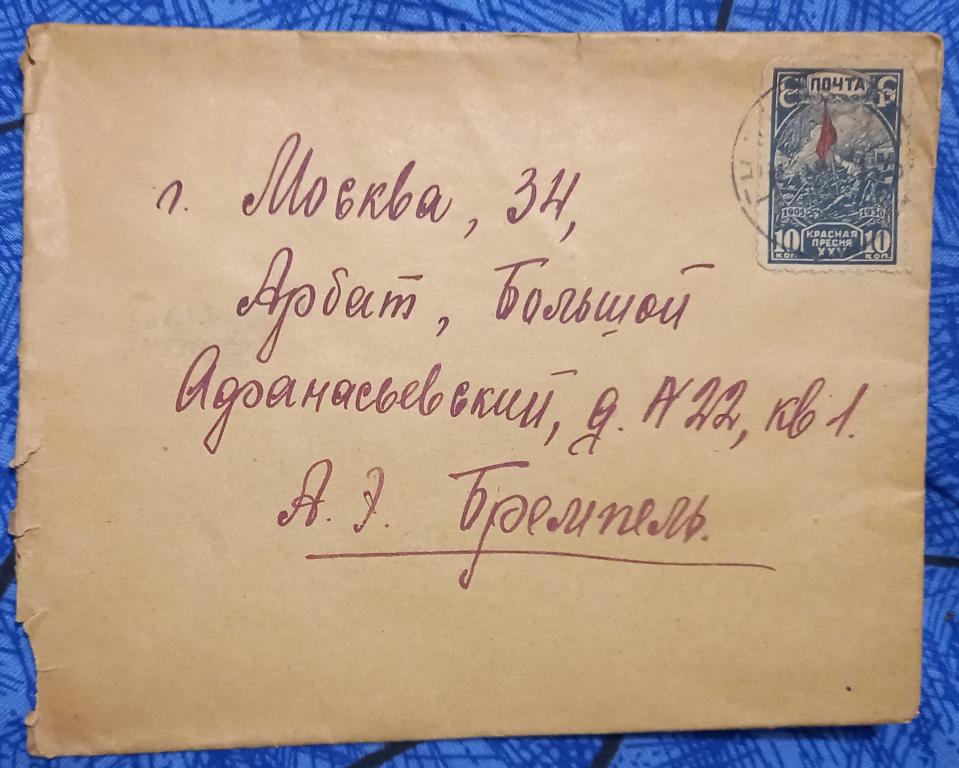 ПОЧТА
1905 1930
10 КРАСНАЯ ПРЕСНЯ 10
КОП. XXV КОП.
г. Москва, 34,
Арбат, Большой
Афанасьевский, д. № 22, кв 1.
А. Э. Бремпель.